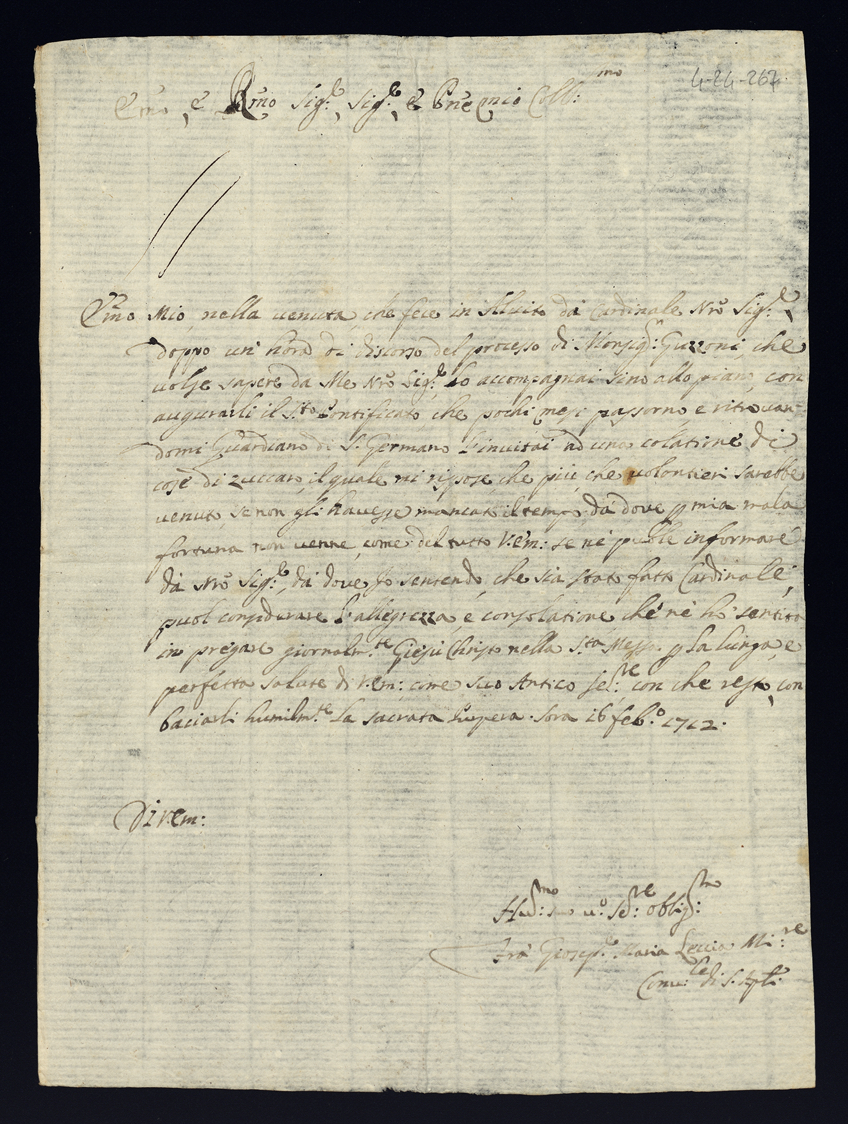 4-24-267
Emo, e Rmo Sig.re, Sig.re e Prne mio Coll:mo
Emo Mio, nella venuta, che fece in Alvito da Cardinale Nro Sig.re,
doppo un'hora di discorso del processo di Monsig.r Guzzoni che
volse sapere da Me Nro Sig.re lo accompagnai sino allo piano, con
augurarli il S.to Pontificato che pochi mesi passorno, e ritrovan-
domi Guardiano di S. Germano l'invitai ad una colatione di
cose di zuccaro, il quale mi rispose, che più, che volontieri sarebbe
venuto se non gli havesse mancato il tempo, da dove p mia mala
fortuna non venne, come del tutto V.Em: se ne puole informare
da Nro Sig.re, da dove Io sentendo, che sia stato fatto Cardinale,
puol considerare l'allegrezza e consolatione che ne hò sentita
in pregare giornalm.te Giesù Christo nella S.ta Messa p la lunga, e
perfetta salute di V.Em: come suo Antico se.re con che resto, con
baciarli humilm.te la sacrata Purpura. Sora 16 feb.o 1712.
Di V.Em:
Hu.mo v.o Se.re obblig.mo
Fra Gioseppe Maria Leccia Mi:re
Conv.le di S. Apli